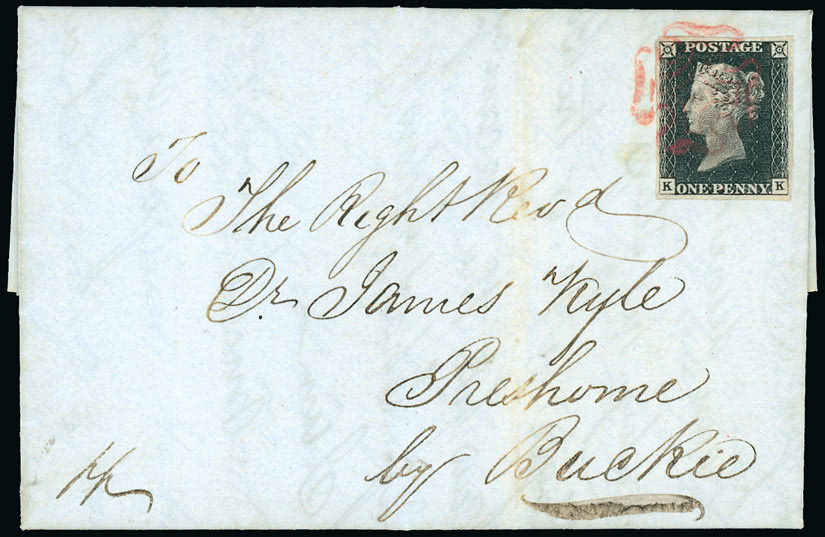 POSTAGE
K K
ONE PENNY
To
The Right Revd
Dr. James Kyle
Preshome
by Buckie